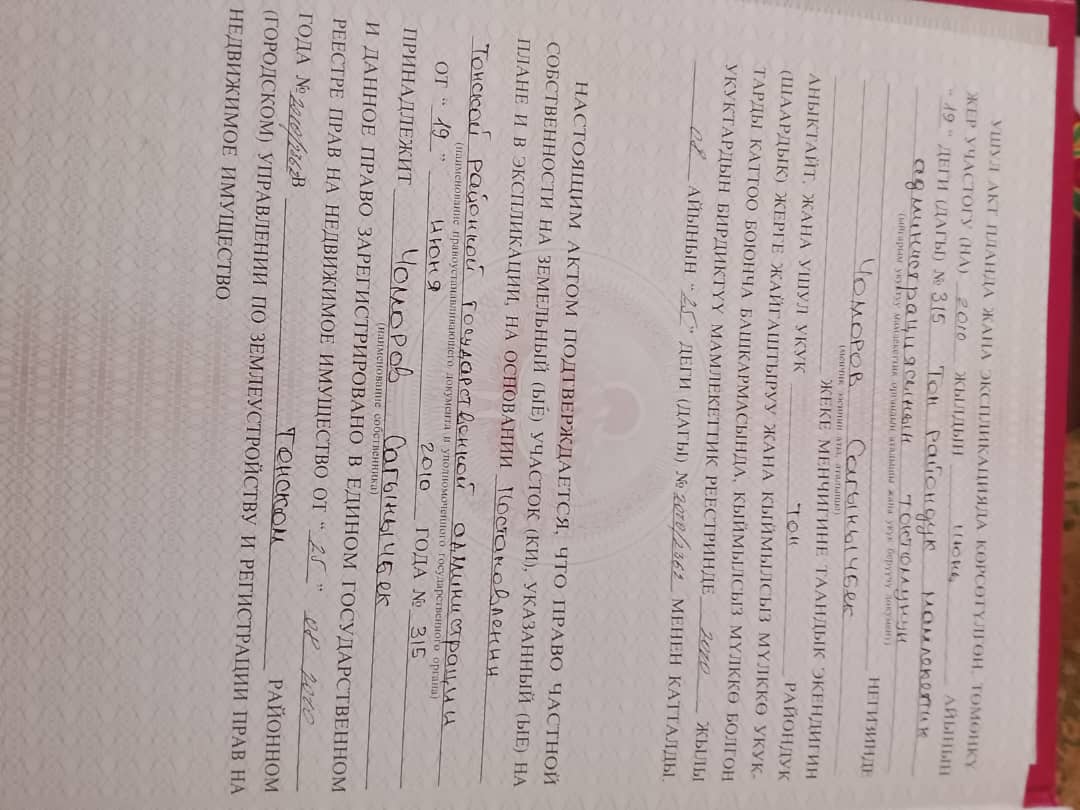 УШУЛ АКТ ПЛАНДА ЖАНА ЭКСПЛИКАЦИЯДА КӨРСӨТҮЛГӨН, ТӨМӨНКҮ
ЖЕР УЧАСТОГУ (НА) 2010 ЖЫЛДЫН июнь АЙЫНЫН
" 19 " ДЕГИ (ДАГЫ) № 315 Тон райондук мамлекетик
администрациясынын токтомунун
(ыйгарым укуктуу мамлекеттик органдын аталышы жана укук берүүчү документ)
НЕГИЗИНДЕ
Чоморов Сагынычбек
(менчик ээсинин аты, аталышы)
ЖЕКЕ МЕНЧИГИНЕ ТААНДЫК ЭКЕНДИГИН
АНЫКТАЙТ, ЖАНА УШУЛ УКУК Тон РАЙОНДУК
(ШААРДЫК) ЖЕРГЕ ЖАЙГАШТЫРУУ ЖАНА КЫЙМЫЛСЫЗ МҮЛККӨ УКУК-
ТАРДЫ КАТТОО БОЮНЧА БАШКАРМАСЫНДА, КЫЙМЫЛСЫЗ МҮЛККӨ БОЛГОН
УКУКТАРДЫН БИРДИКТҮҮ МАМЛЕКЕТТИК РЕЕСТРИНДЕ 2010 ЖЫЛЫ
08 АЙЫНЫН " 25 " ДЕГИ (ДАГЫ) № 2010/2362 МЕНЕН КАТТАЛДЫ.
НАСТОЯЩИМ АКТОМ ПОДТВЕРЖДАЕТСЯ, ЧТО ПРАВО ЧАСТНОЙ
СОБСТВЕННОСТИ НА ЗЕМЕЛЬНЫЙ (ЫЕ) УЧАСТОК (КИ), УКАЗАННЫЙ (ЫЕ) НА
ПЛАНЕ И В ЭКСПЛИКАЦИИ, НА ОСНОВАНИИ Постановлении
Тонской районной государственной администрации
(наименование правоустанавливающего документа и уполномоченного государственного органа)
ОТ " 19 " июня 2010 ГОДА № 315
ПРИНАДЛЕЖИТ Чоморов Сагынычбек
(наименование собственника)
И ДАННОЕ ПРАВО ЗАРЕГИСТРИРОВАНО В ЕДИНОМ ГОСУДАРСТВЕННОМ
РЕЕСТРЕ ПРАВ НА НЕДВИЖИМОЕ ИМУЩЕСТВО ОТ " 25 " 08 2010
ГОДА № 2010/2362 В Тонском РАЙОННОМ
(ГОРОДСКОМ) УПРАВЛЕНИИ ПО ЗЕМЛЕУСТРОЙСТВУ И РЕГИСТРАЦИИ ПРАВ НА
НЕДВИЖИМОЕ ИМУЩЕСТВО